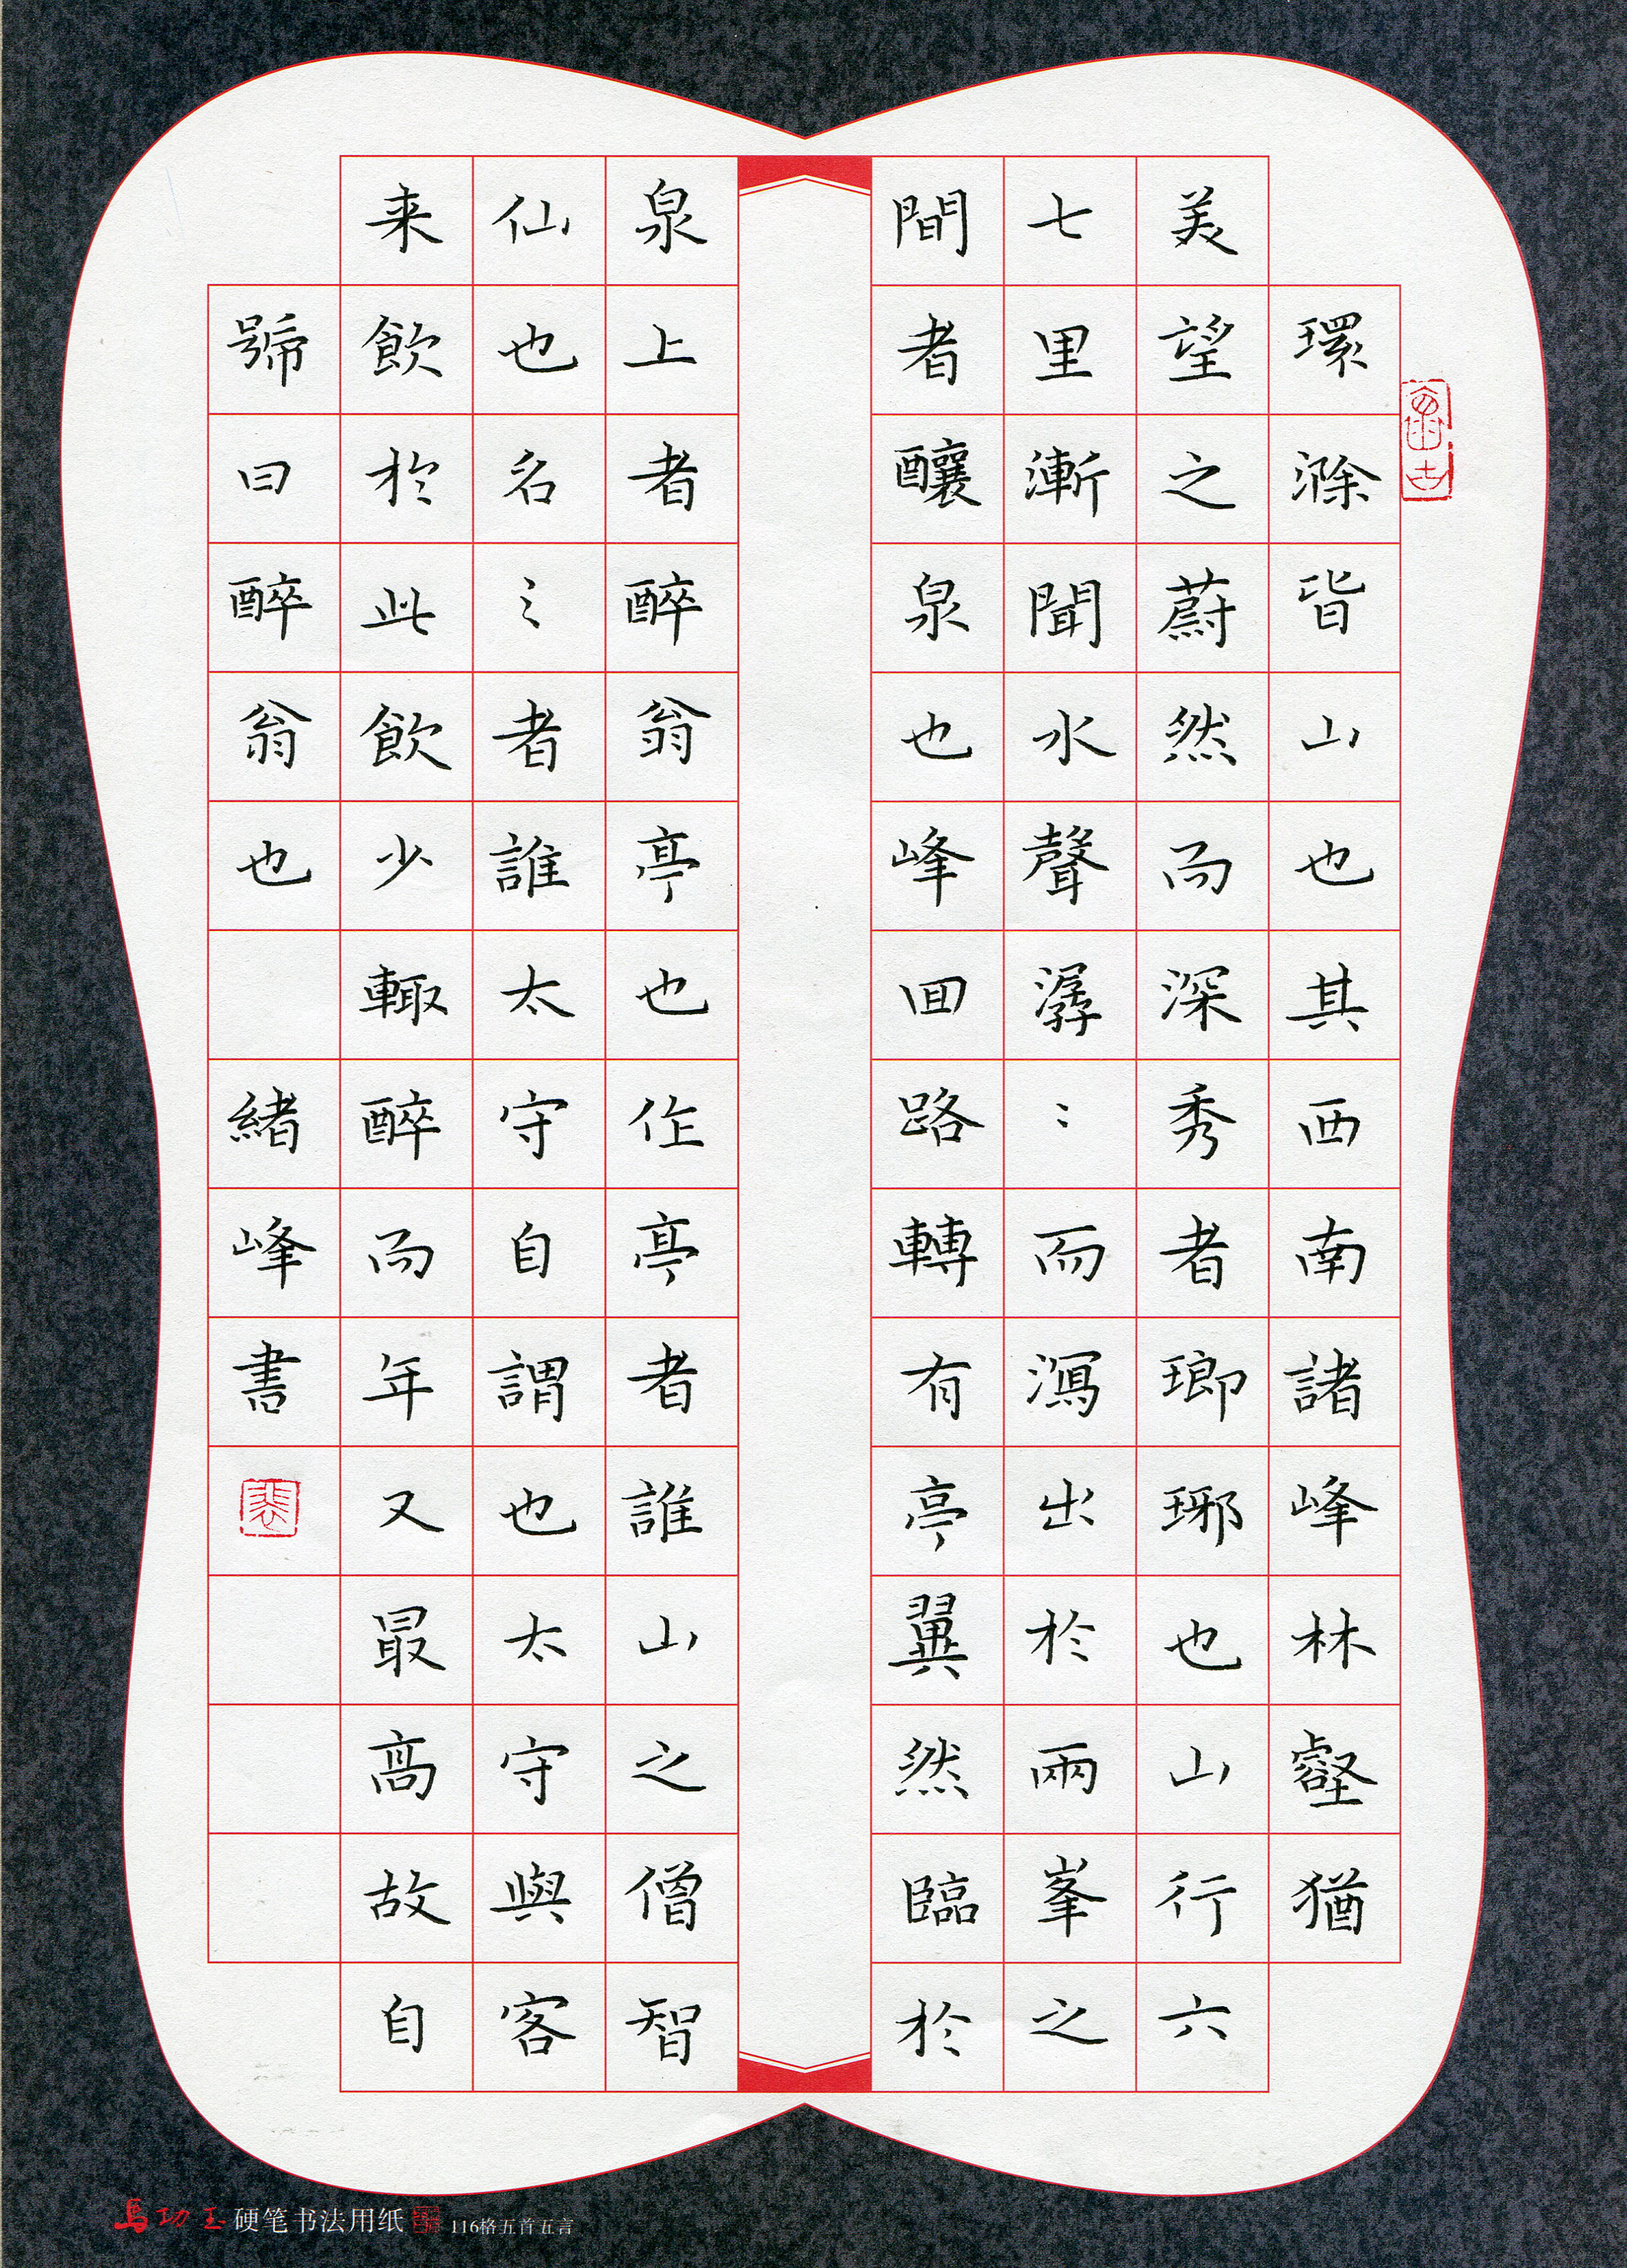 環滁皆山也其西南諸峰林壑猶
美望之蔚然而深秀者瑯琊也山行六
七里漸聞水聲潺〻而瀉出於兩峯之
間者釀泉也峰回路轉有亭翼然臨於
泉上者醉翁亭也作亭者誰山之僧智
仙也名之者誰太守自謂也太守與客
来飲於此飲少輒醉而年又最高故自
號曰醉翁也 緒峰書
馬功玉 硬笔书法用纸 116格五首五言